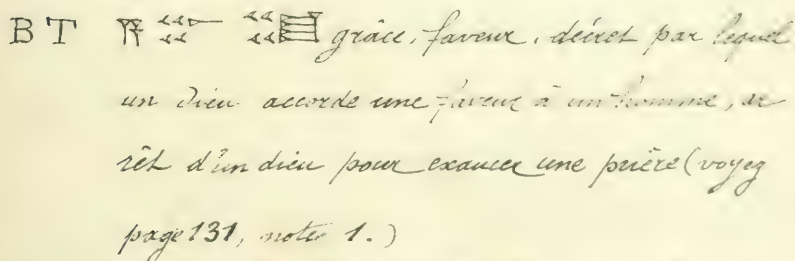 B T grâce, faveur, décret par lequel
un dieu accorde une faveur à un homme, ar
rêt d'un dieu pour exaucer une prière (voyez
page 131, note 1.)